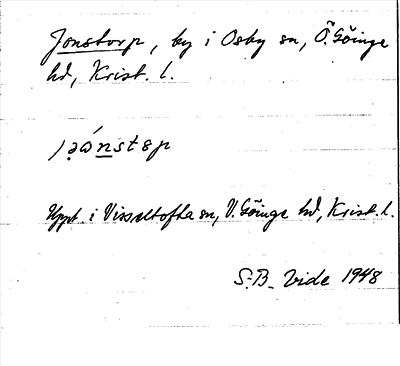 Jonstorp, by i Osby sn, Ö. Göinge
hd, Krist. l.
Uppt. i Visseltofta sn, V. Göinge hd, Krist. l.
S:B. Vide 1948